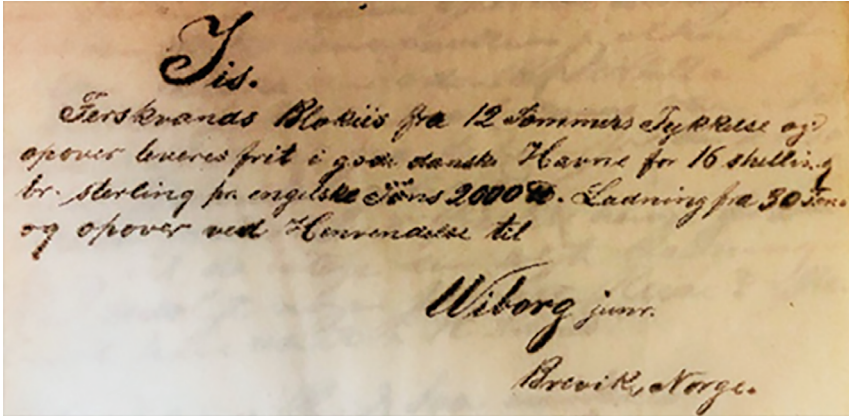 Iis.
Ferskvands Blokiis fra 12 Tommers Tykkelse og
opover leveres frit i gode danske Havne for 16 shelling
br. sterling pr. engelske Töns 2000 ℔. Ladning fra 30 Ton.
og opover ved Henvendelse til
Wiborg junr.
Brevik, Norge.